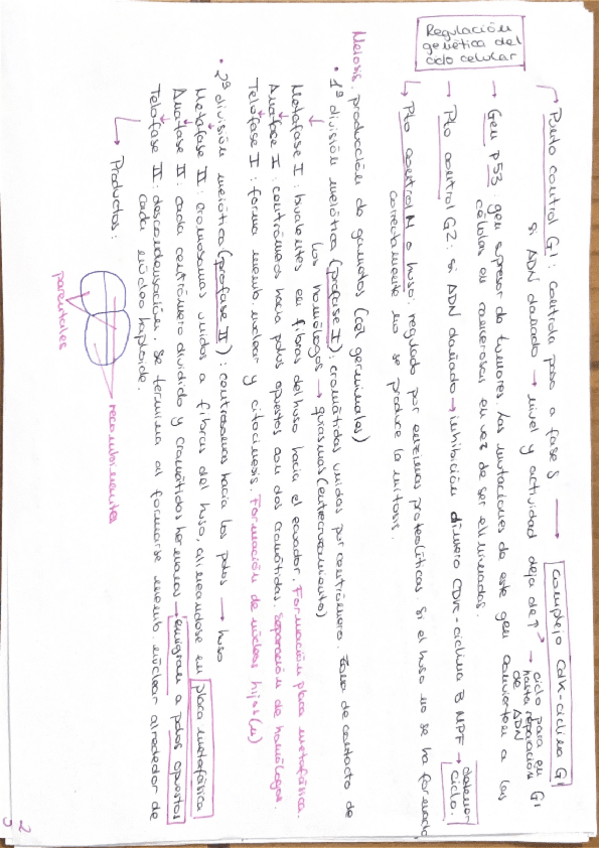 Regulación
genética del
ciclo celular
→ Punto control G1: controla paso a fase S → Complejo Cdk-ciclina G1
si ADN dañado → nivel y actividad deja de p↗ → ciclo para en G1
hasta reparación
de ADN
→ Gen p53 gen supresor de tumores. Las mutaciones de este gen convierten a las
células en cancerosas en vez de ser eliminadas.
→ Pto control G2: si ADN dañado → inhibición dímero CDK-ciclina B MPF → detener
ciclo.
→ Pto control M o huso: regulado por enzimas proteolíticas si el huso no se ha formado
correctamente no se produce la mitosis.
Meiosis: producción de gametos (cél germinales)
• 1ª división meiótica (profase I): cromátidas unidas por centrómero. Zona de contacto de
los homólogos → quiasmas (entrecruzamiento)
Metafase I: bivalentes en fibras del huso hacia el ecuador. Formación placa metafásica.
Anafase I: centrómeros hacia polos opuestos con dos cromátidas. Separación de homólogos.
Telofase I: forma memb. nuclear y citocinesis. Formación de núcleos hijos (n)
• 2ª división meiótica (profase II): centrosomas hacia los polos → huso
Metafase II: cromosomas unidos a fibras del huso, alineandose en placa metafásica
Anafase II: cada centrómero dividido y cromátidas hermanas → emigran a polos opuestos
Telofase II: descondensación. Se termina al formarse memb. nuclear alrededor de
cada núcleo haploide.
→ Productos:
recombinantes
parentales